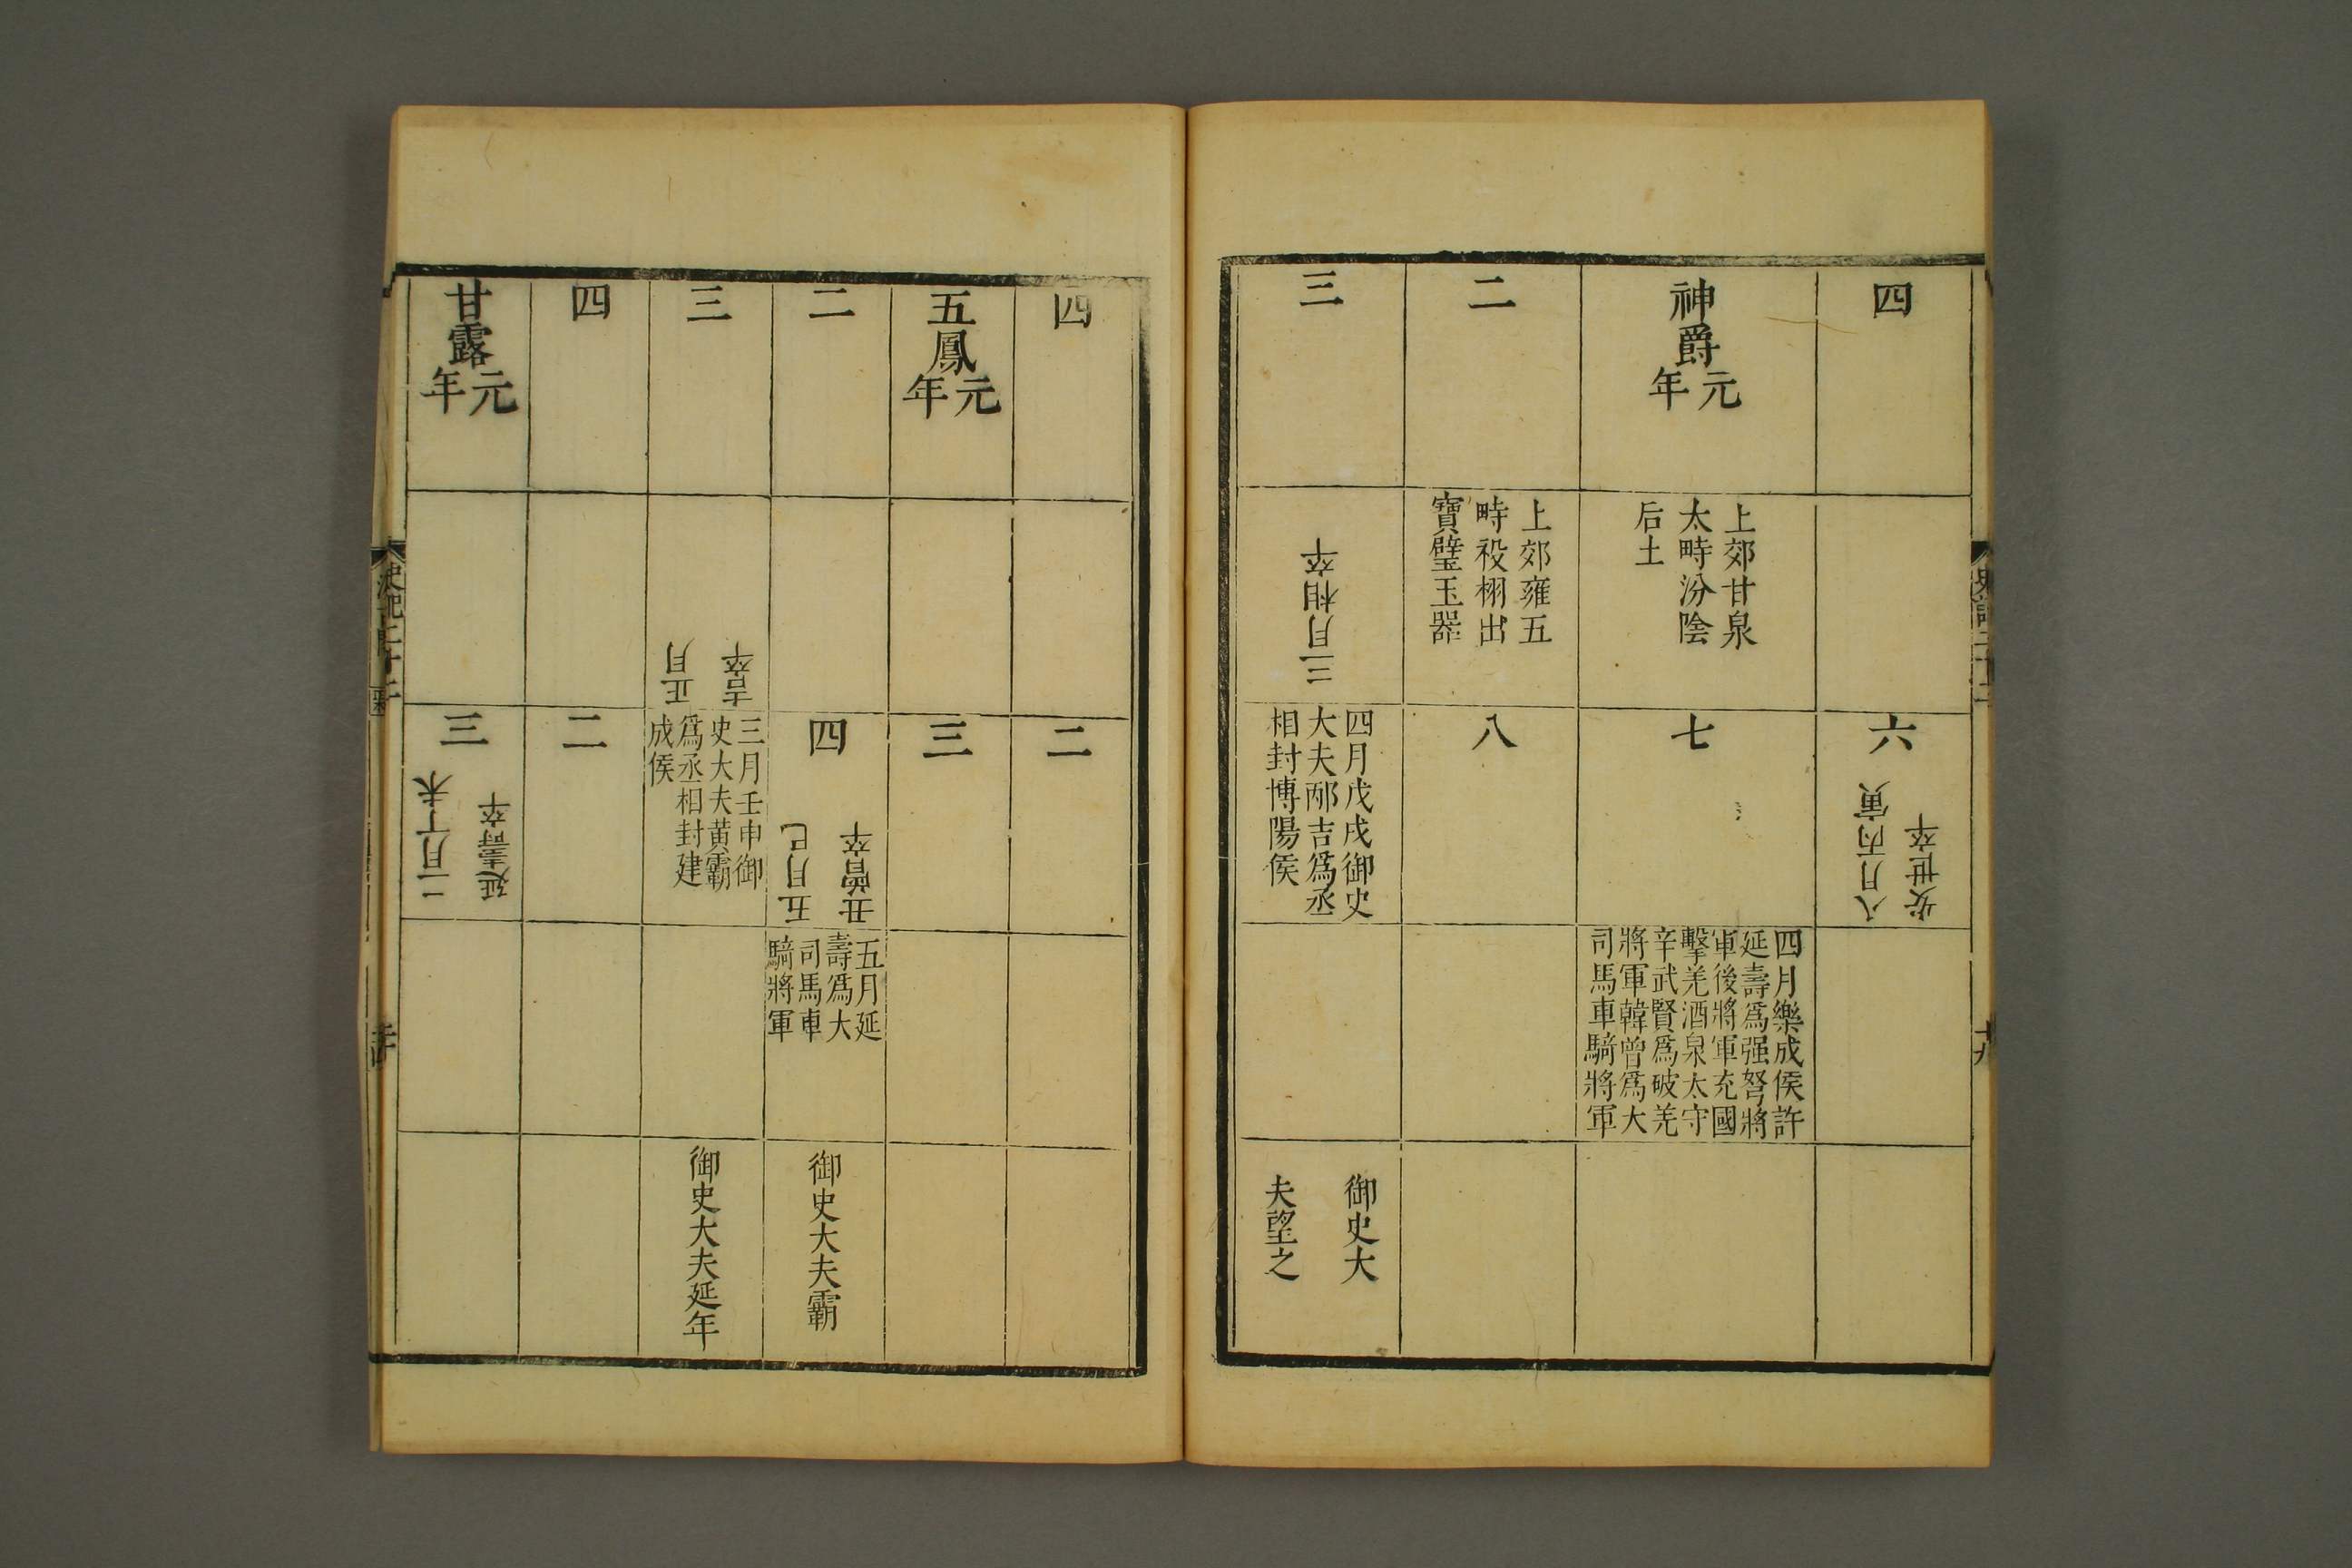 四
六
八月丙寅
安世卒
神爵
元
年
上郊甘泉
太畤汾陰
后土
七
四月樂成侯許
延壽爲强弩將
軍後將軍充國
擊羌酒泉太守
辛武賢爲破羌
將軍韓曾爲大
司馬車騎將軍
二
上郊雍五
畤祋栩出
寶璧玉器
八
三
三月相卒
四月戊戌御史
大夫邴吉爲丞
相封博陽侯
御史大
夫望之
四
二
五鳳
元
年
三
二
四
五月己
丑曾卒
五月延
壽爲大
司馬車
騎將軍
御史大夫霸
三
正月
吉卒
三月壬申御
史大夫黄霸
爲丞相封建
成侯
御史大夫延年
四
二
甘露
元
年
三
二月丁未
延壽卒
史記二十二